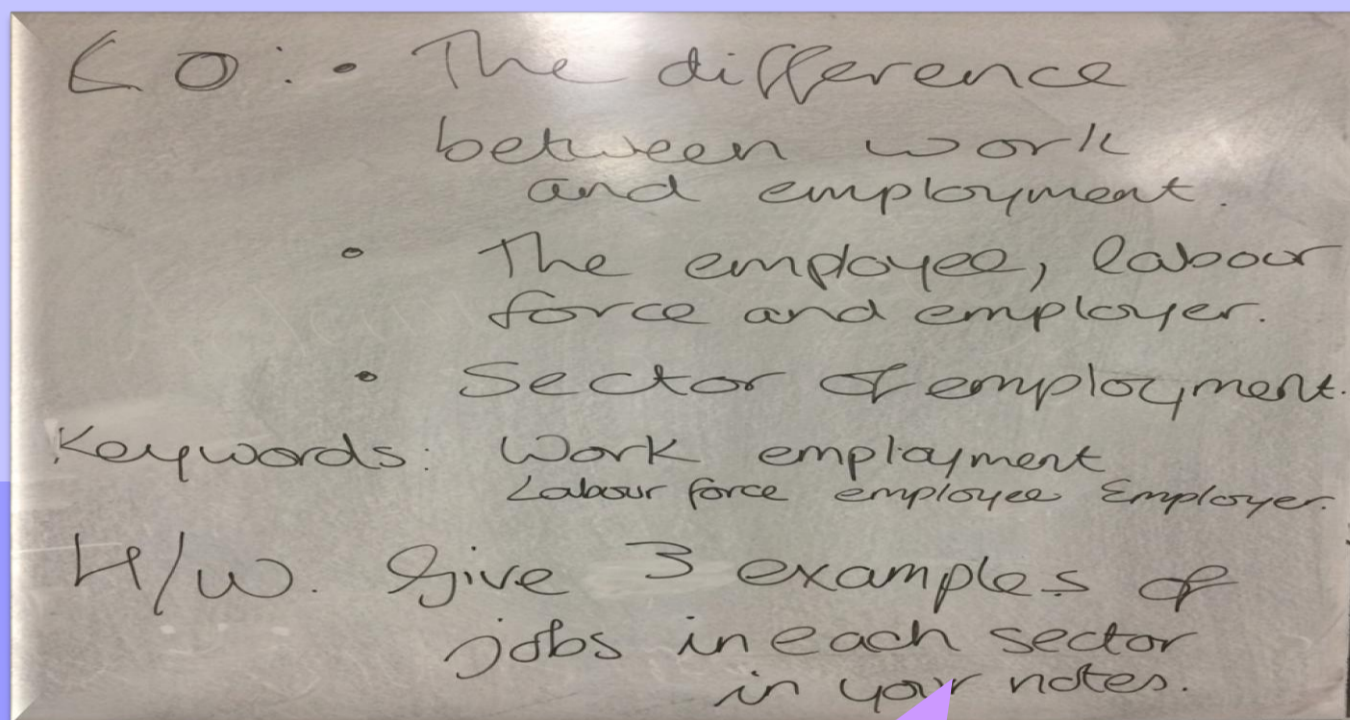 LO: • The difference
between work
and employment.
• The employee, labour
force and employer.
• Sector of employment.
Keywords: Work employment
Labour force employee Employer.
H/W. Give 3 examples of
jobs in each sector
in your notes.